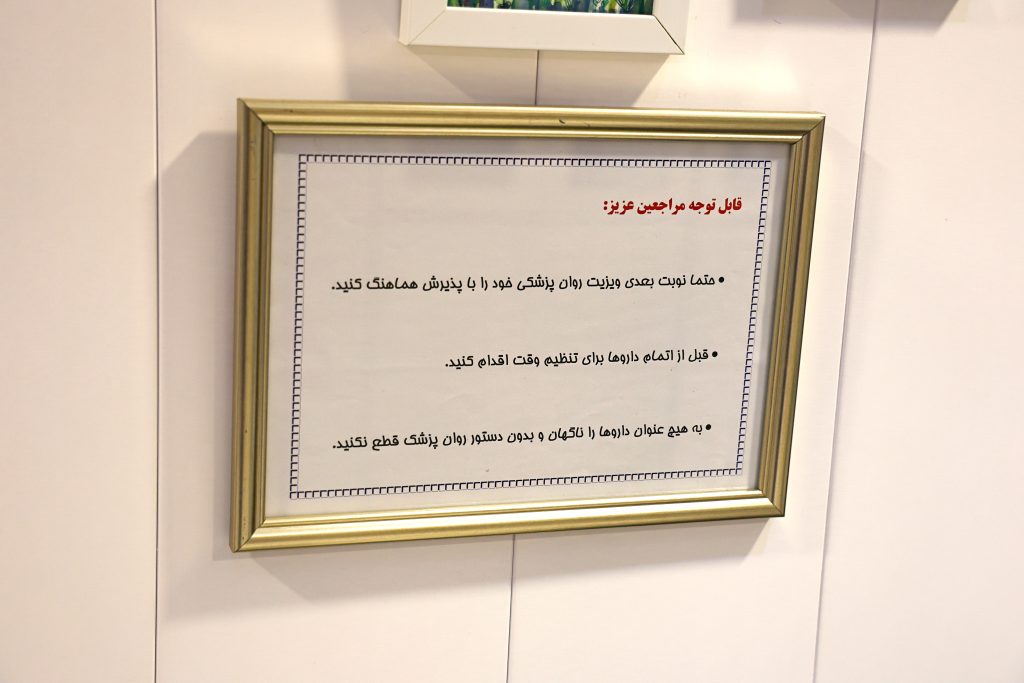 قابل توجه مراجعین عزیز:
• حتما نوبت بعدی ویزیت روان پزشکی خود را با پذیرش هماهنگ کنید.
• قبل از اتمام داروها برای تنظیم وقت اقدام کنید.
• به هیچ عنوان داروها را ناگهان و بدون دستور روان پزشک قطع نکنید.